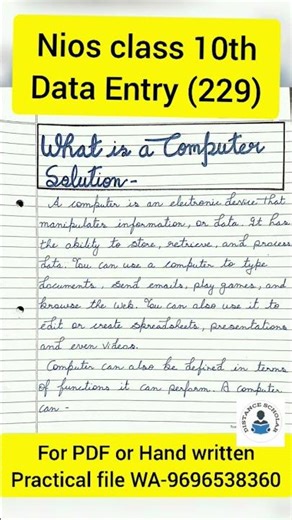 Nios class 10th
Data Entry (229)
What is a Computer
Solution-
A computer is an electronic device that
manipulates information, or data. It has
the ability to store, retrieve, and process
data. You can use a computer to type
documents, send emails, play games, and
browse the web. You can also use it to
edit or create spreadsheets, presentations
and even videos.
Computer can also be defined in terms
of functions it can perform. A computer
can -
DISTANCE SCHOLAR
For PDF or Hand written
Practical file WA-9696538360